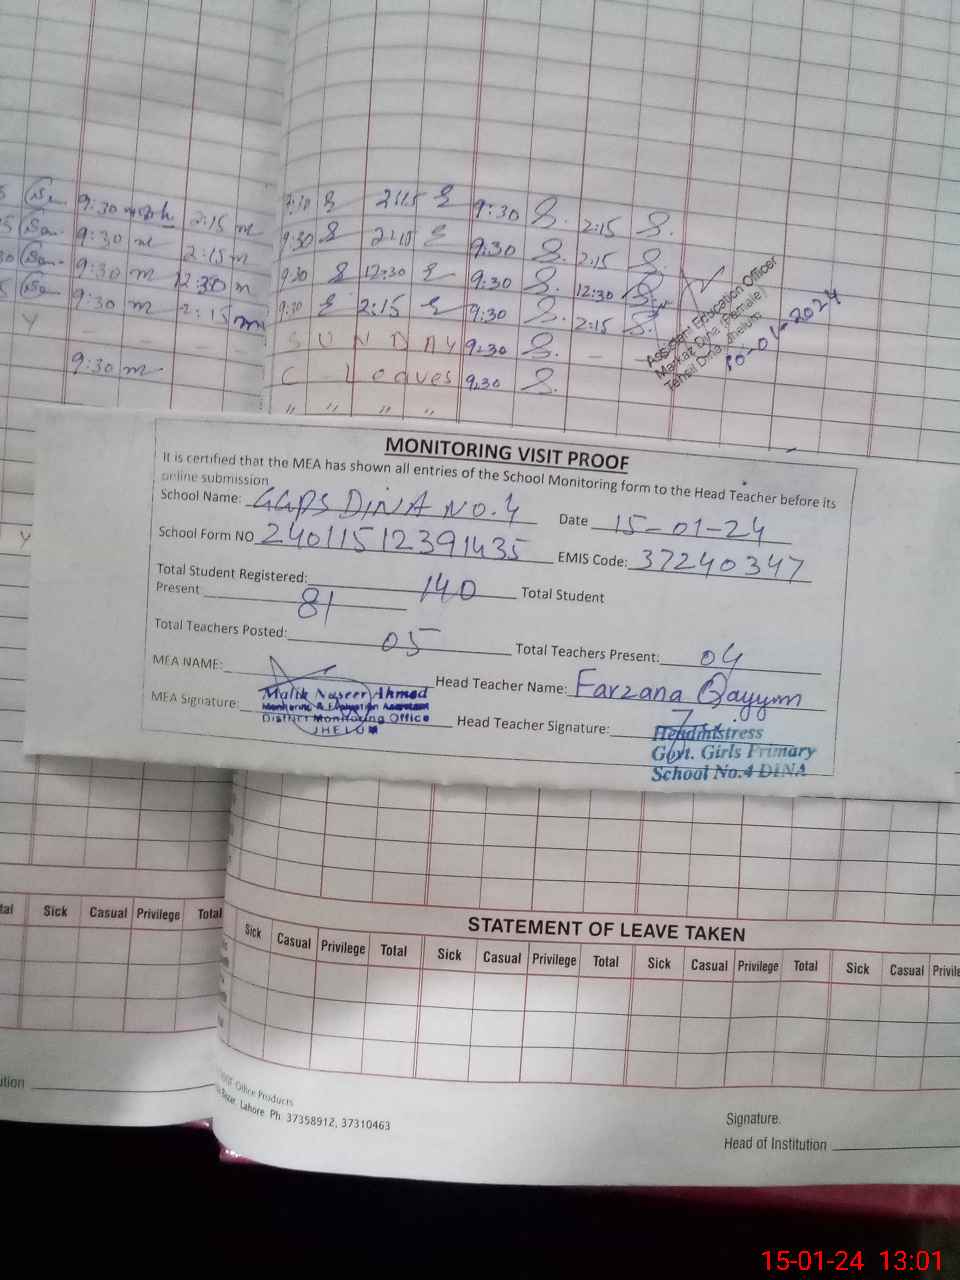 9:30 m 2:15 m 9:30 2:15 9:30 2:15
9:30 m 2:15 m 9:30 9:30 2:15
9:30 m 12:30 m 9:30 12:30 9:30 12:30
9:30 m 2:15 m 9:30 2:15 9:30 2:15
Y – – S U N D A Y 9:30 –
9:30 m C Leaves 9:30
" " " "
Assistant Education Officer
Markaz Dina (Female)
Tehsil Dina, Jhelum
10-01-2024
MONITORING VISIT PROOF
It is certified that the MEA has shown all entries of the School Monitoring form to the Head Teacher before its
online submission
School Name: GGPS DINA No.4 Date 15-01-24
School Form NO 24011512391435 EMIS Code: 37240347
Total Student Registered: 140 Total Student
Present 81
Total Teachers Posted: 05 Total Teachers Present: 04
MEA NAME: Head Teacher Name: Farzana Qayyum
MEA Signature: Head Teacher Signature:
Malik Naseer Ahmed
Monitoring & Evaluation Assistant
District Monitoring Office
JHELUM
Headmistress
Govt. Girls Primary
School No.4 DINA
Sick Casual Privilege Total
STATEMENT OF LEAVE TAKEN
Sick Casual Privilege Total Sick Casual Privilege Total Sick Casual Privilege Total Sick Casual
Office Products
Lahore. Ph: 37358912, 37310463
Signature.
Head of Institution
15-01-24 13:01